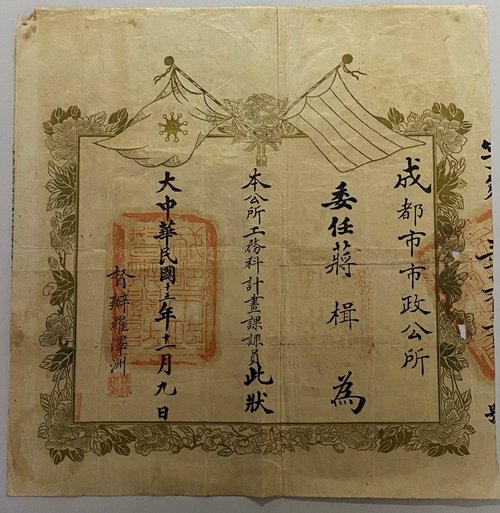 成都市市政公所
委任蔣楫為
本公所工務科計畫課課員此狀
大中華民國十三年十一月九日
督辦羅澤洲